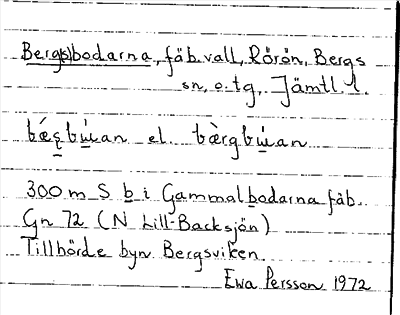 Berg(s)bodarna, fäb.vall, Rörön, Bergs
sn, o. tg, Jämtl. l.
bǽșbu̇an el. bærgbu̇an
300 m S b i Gammalbodarna fäb.
Gn 72 (N Lill-Backsjön)
Tillhörde byn Bergsviken.
Ewa Persson 1972